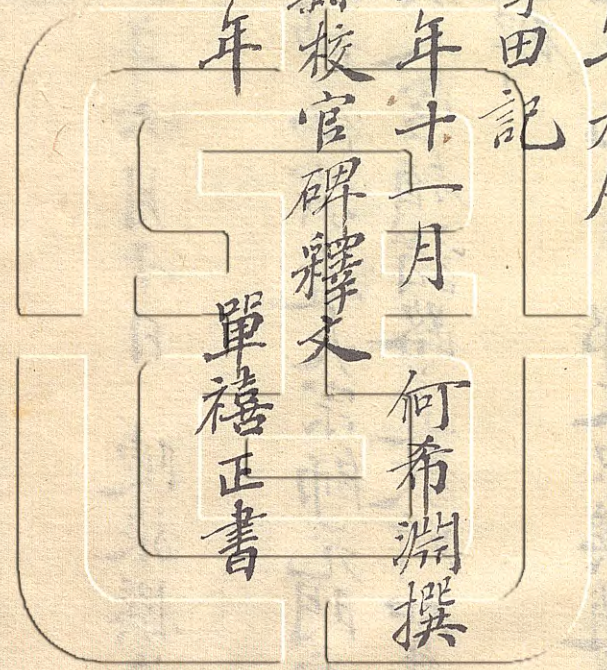 田記
年十一月 何希淵撰
校官碑釋文
年 單禧正書